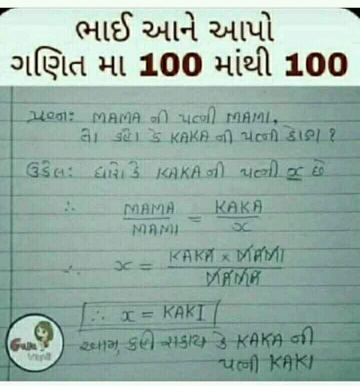 ભાઈ આને આપો
ગણિત મા 100 માંથી 100
પ્રશ્ન: MAMA ની પત્ની MAMI,
તો કહો કે KAKA ની પત્ની કોણ ?
ઉકેલ: ધારો કે KAKA ની પત્ની x છે
∴ MAMA / MAMI = KAKA / x
∴ x = KAKA × MAMI / MAMA
∴ x = KAKI
આમ, કહી શકાય કે KAKA ની
પત્ની KAKI